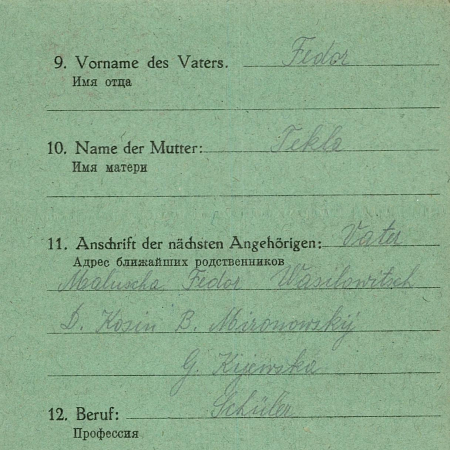 9. Vorname des Vaters. Fedor
Имя отца
10. Name der Mutter: Tekla
Имя матери
11. Anschrift der nächsten Angehörigen: Vater
Адрес ближайших родственников
Maluscha Fedor Wasilowitsch
D. Kosin B. Mironowskij
G. Kijewska
12. Beruf: Schüler
Профессия